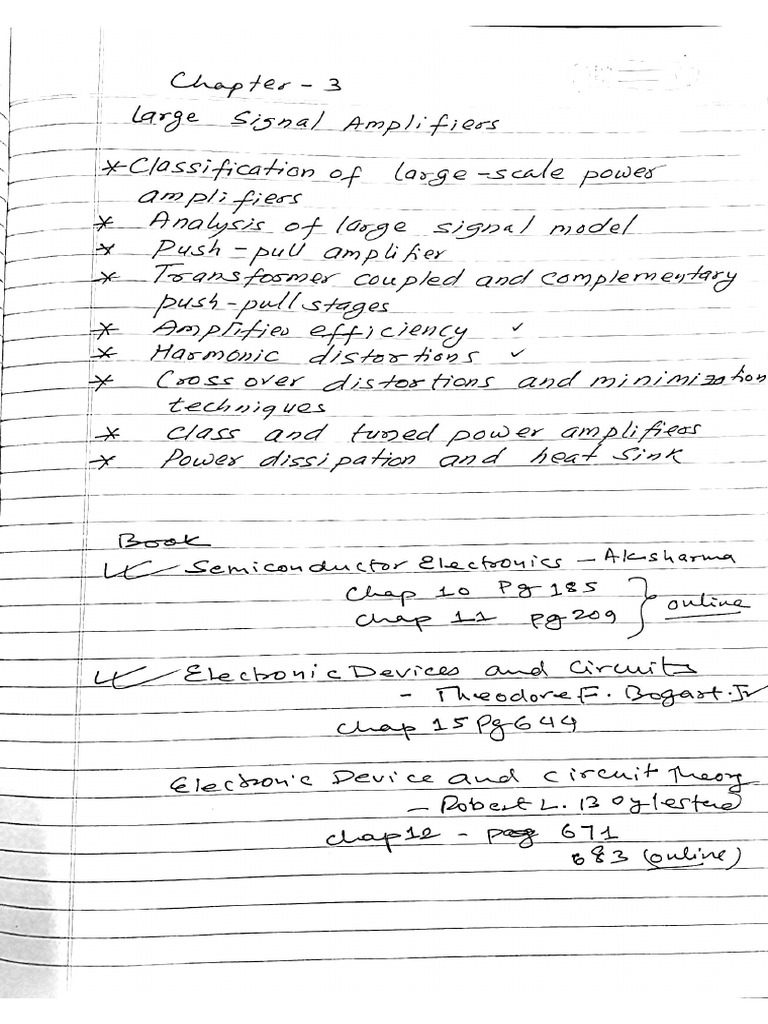 Chapter - 3
Large Signal Amplifiers
* Classification of large-scale power
amplifiers
* Analysis of large signal model
* Push-pull amplifier
* Transformer coupled and complementary
push-pull stages
* Amplifier efficiency ✓
* Harmonic distortions ✓
* Cross over distortions and minimization
techniques
* Class and tuned power amplifiers
* Power dissipation and heat sink
Book
Semiconductor Electronics - AK sharma
Chap 10 Pg 185
Chap 11 pg 209 } online
Electronic Devices and Circuits
- Theodore F. Bogart. Jr
Chap 15 Pg 644
Electronic Device and circuit Theory
- Robert L. Boylestend
Chap 12 - pag 671
683 (online)